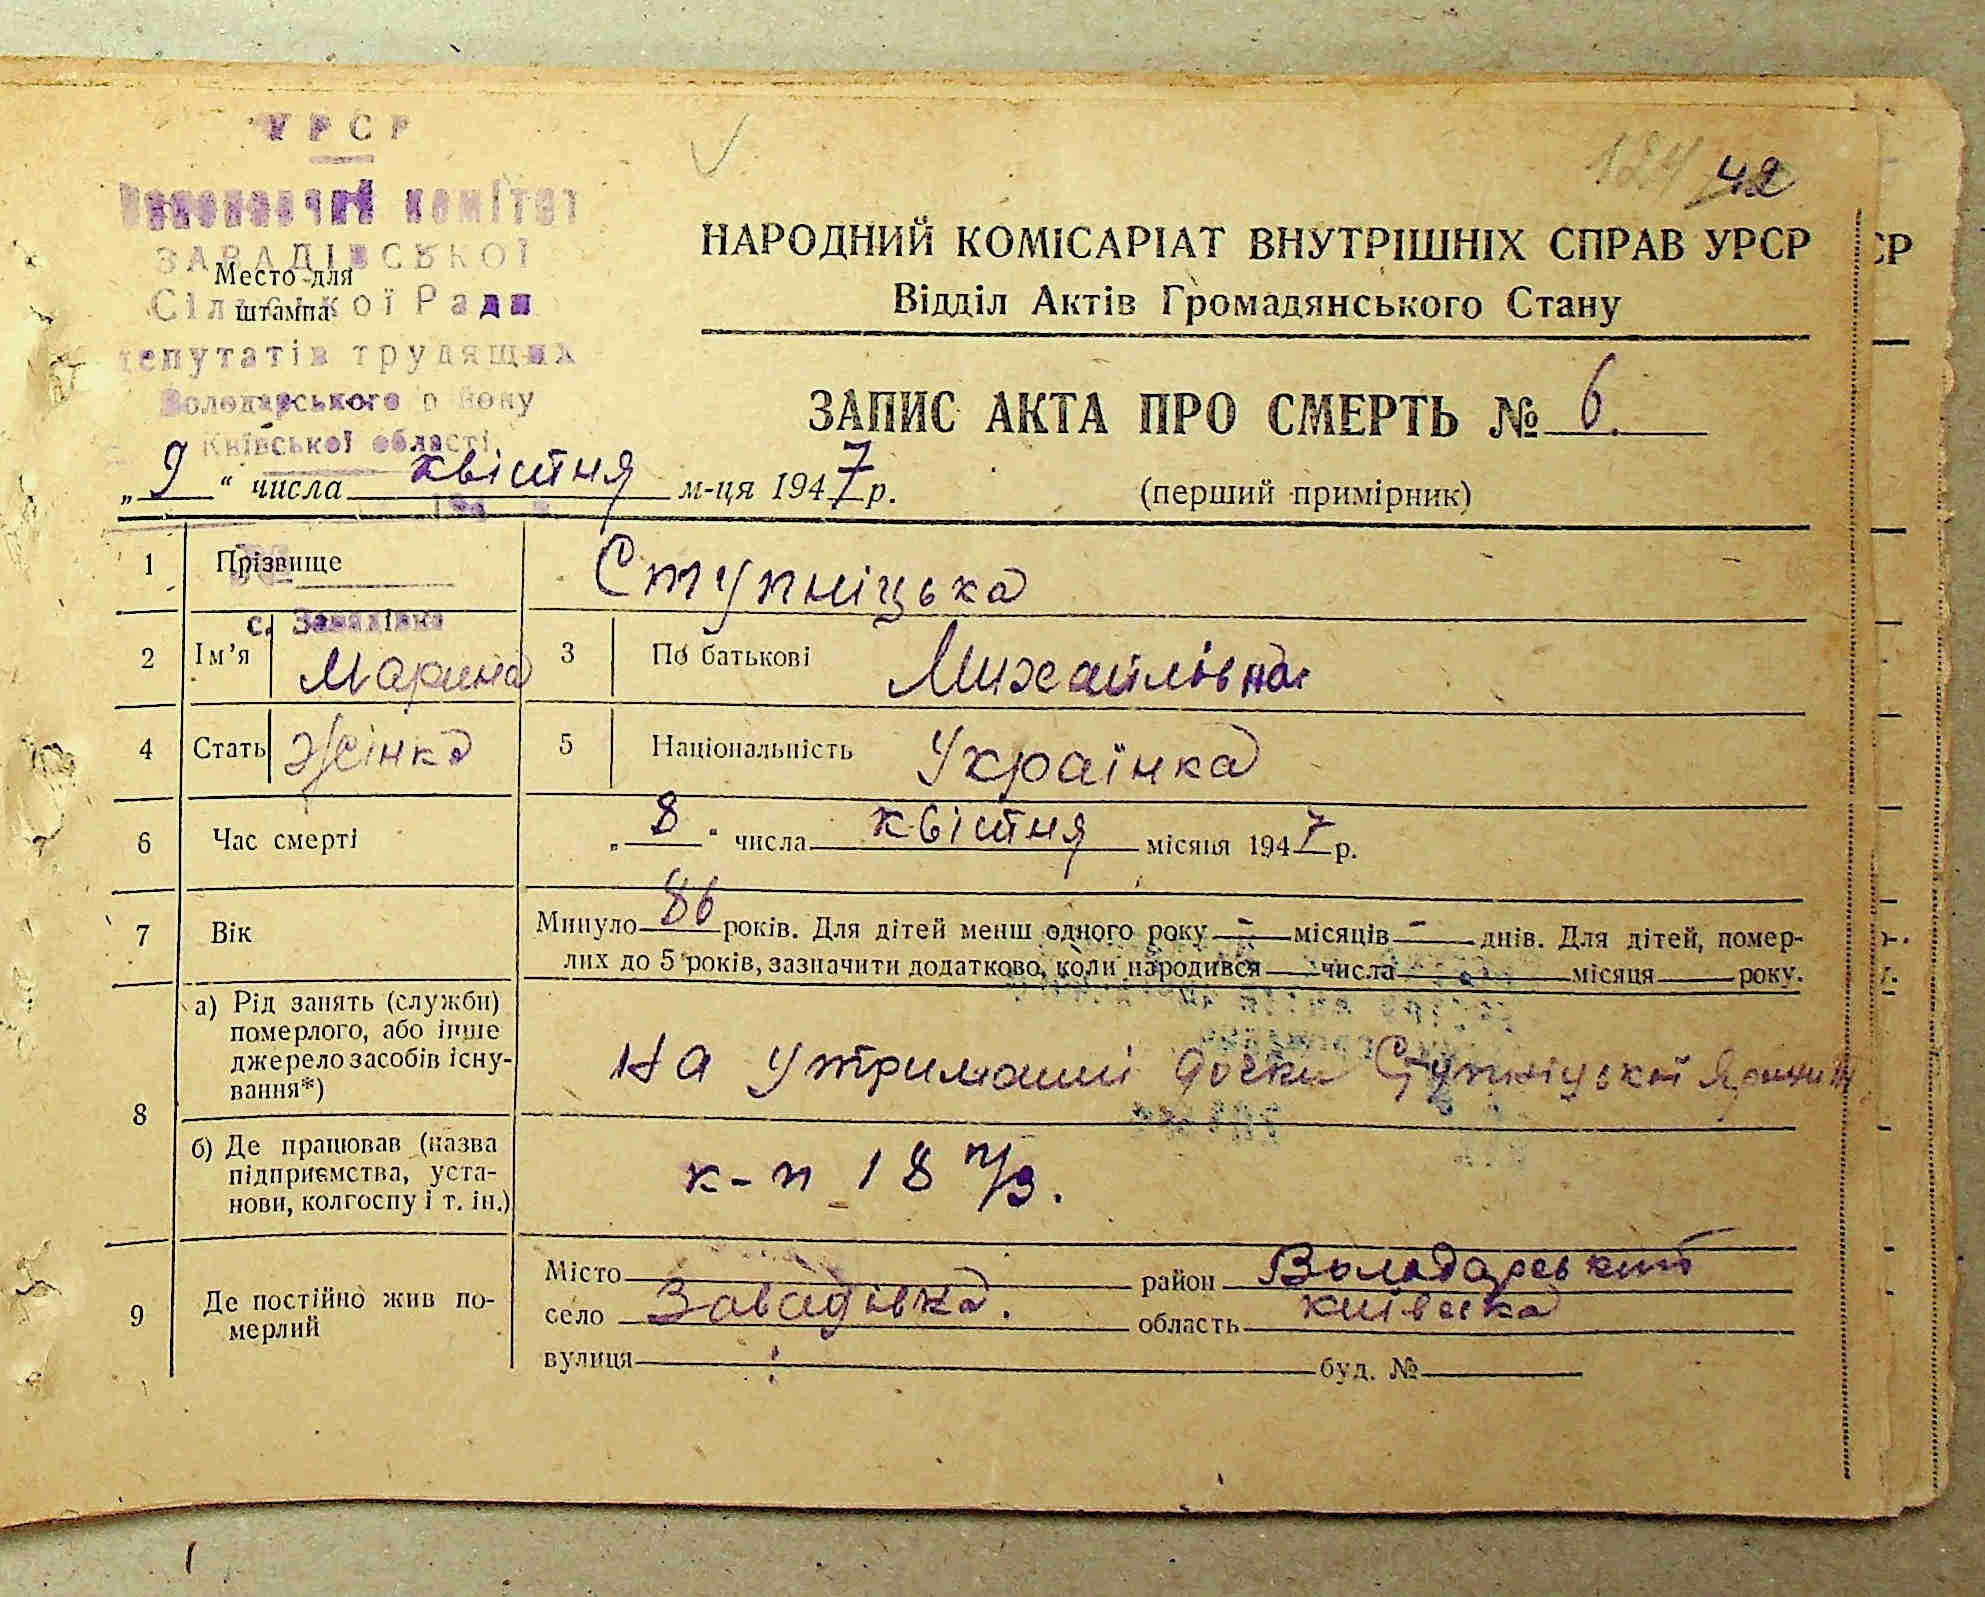 УРСР
Виконавчий комітет
ЗАВАДІВСЬКОЇ
Место для
штампа
Сільської Ради
депутатів трудящих
Володарського району
Київської області
с. Завадівка
42
НАРОДНИЙ КОМІСАРІАТ ВНУТРІШНІХ СПРАВ УРСР
Відділ Актів Громадянського Стану
ЗАПИС АКТА ПРО СМЕРТЬ № 6.
„ 9 “ числа квітня м-ця 1947 р.
(перший примірник)
1 Прізвище Ступніцька
2 Ім’я Марина 3 По батькові Михайлівна
4 Стать Жінка 5 Національність Українка
6 Час смерті „ 8 “ числа квітня місяця 1947 р.
7 Вік Минуло 86 років. Для дітей менш одного року - місяців - днів. Для дітей, помер-
лих до 5 років, зазначити додатково, коли народився числа місяця року.
8 а) Рід занять (служби)
померлого, або інше
джерело засобів існу-
вання*)
на утриманні дочки Ступніцької Ярини
б) Де працював (назва
підприємства, уста-
нови, колгоспу і т. ін.)
к-п 18 п/з.
9 Де постійно жив по-
мерлий
Місто район Володарський
село Завадівка. область київська
вулиця буд. №
СР